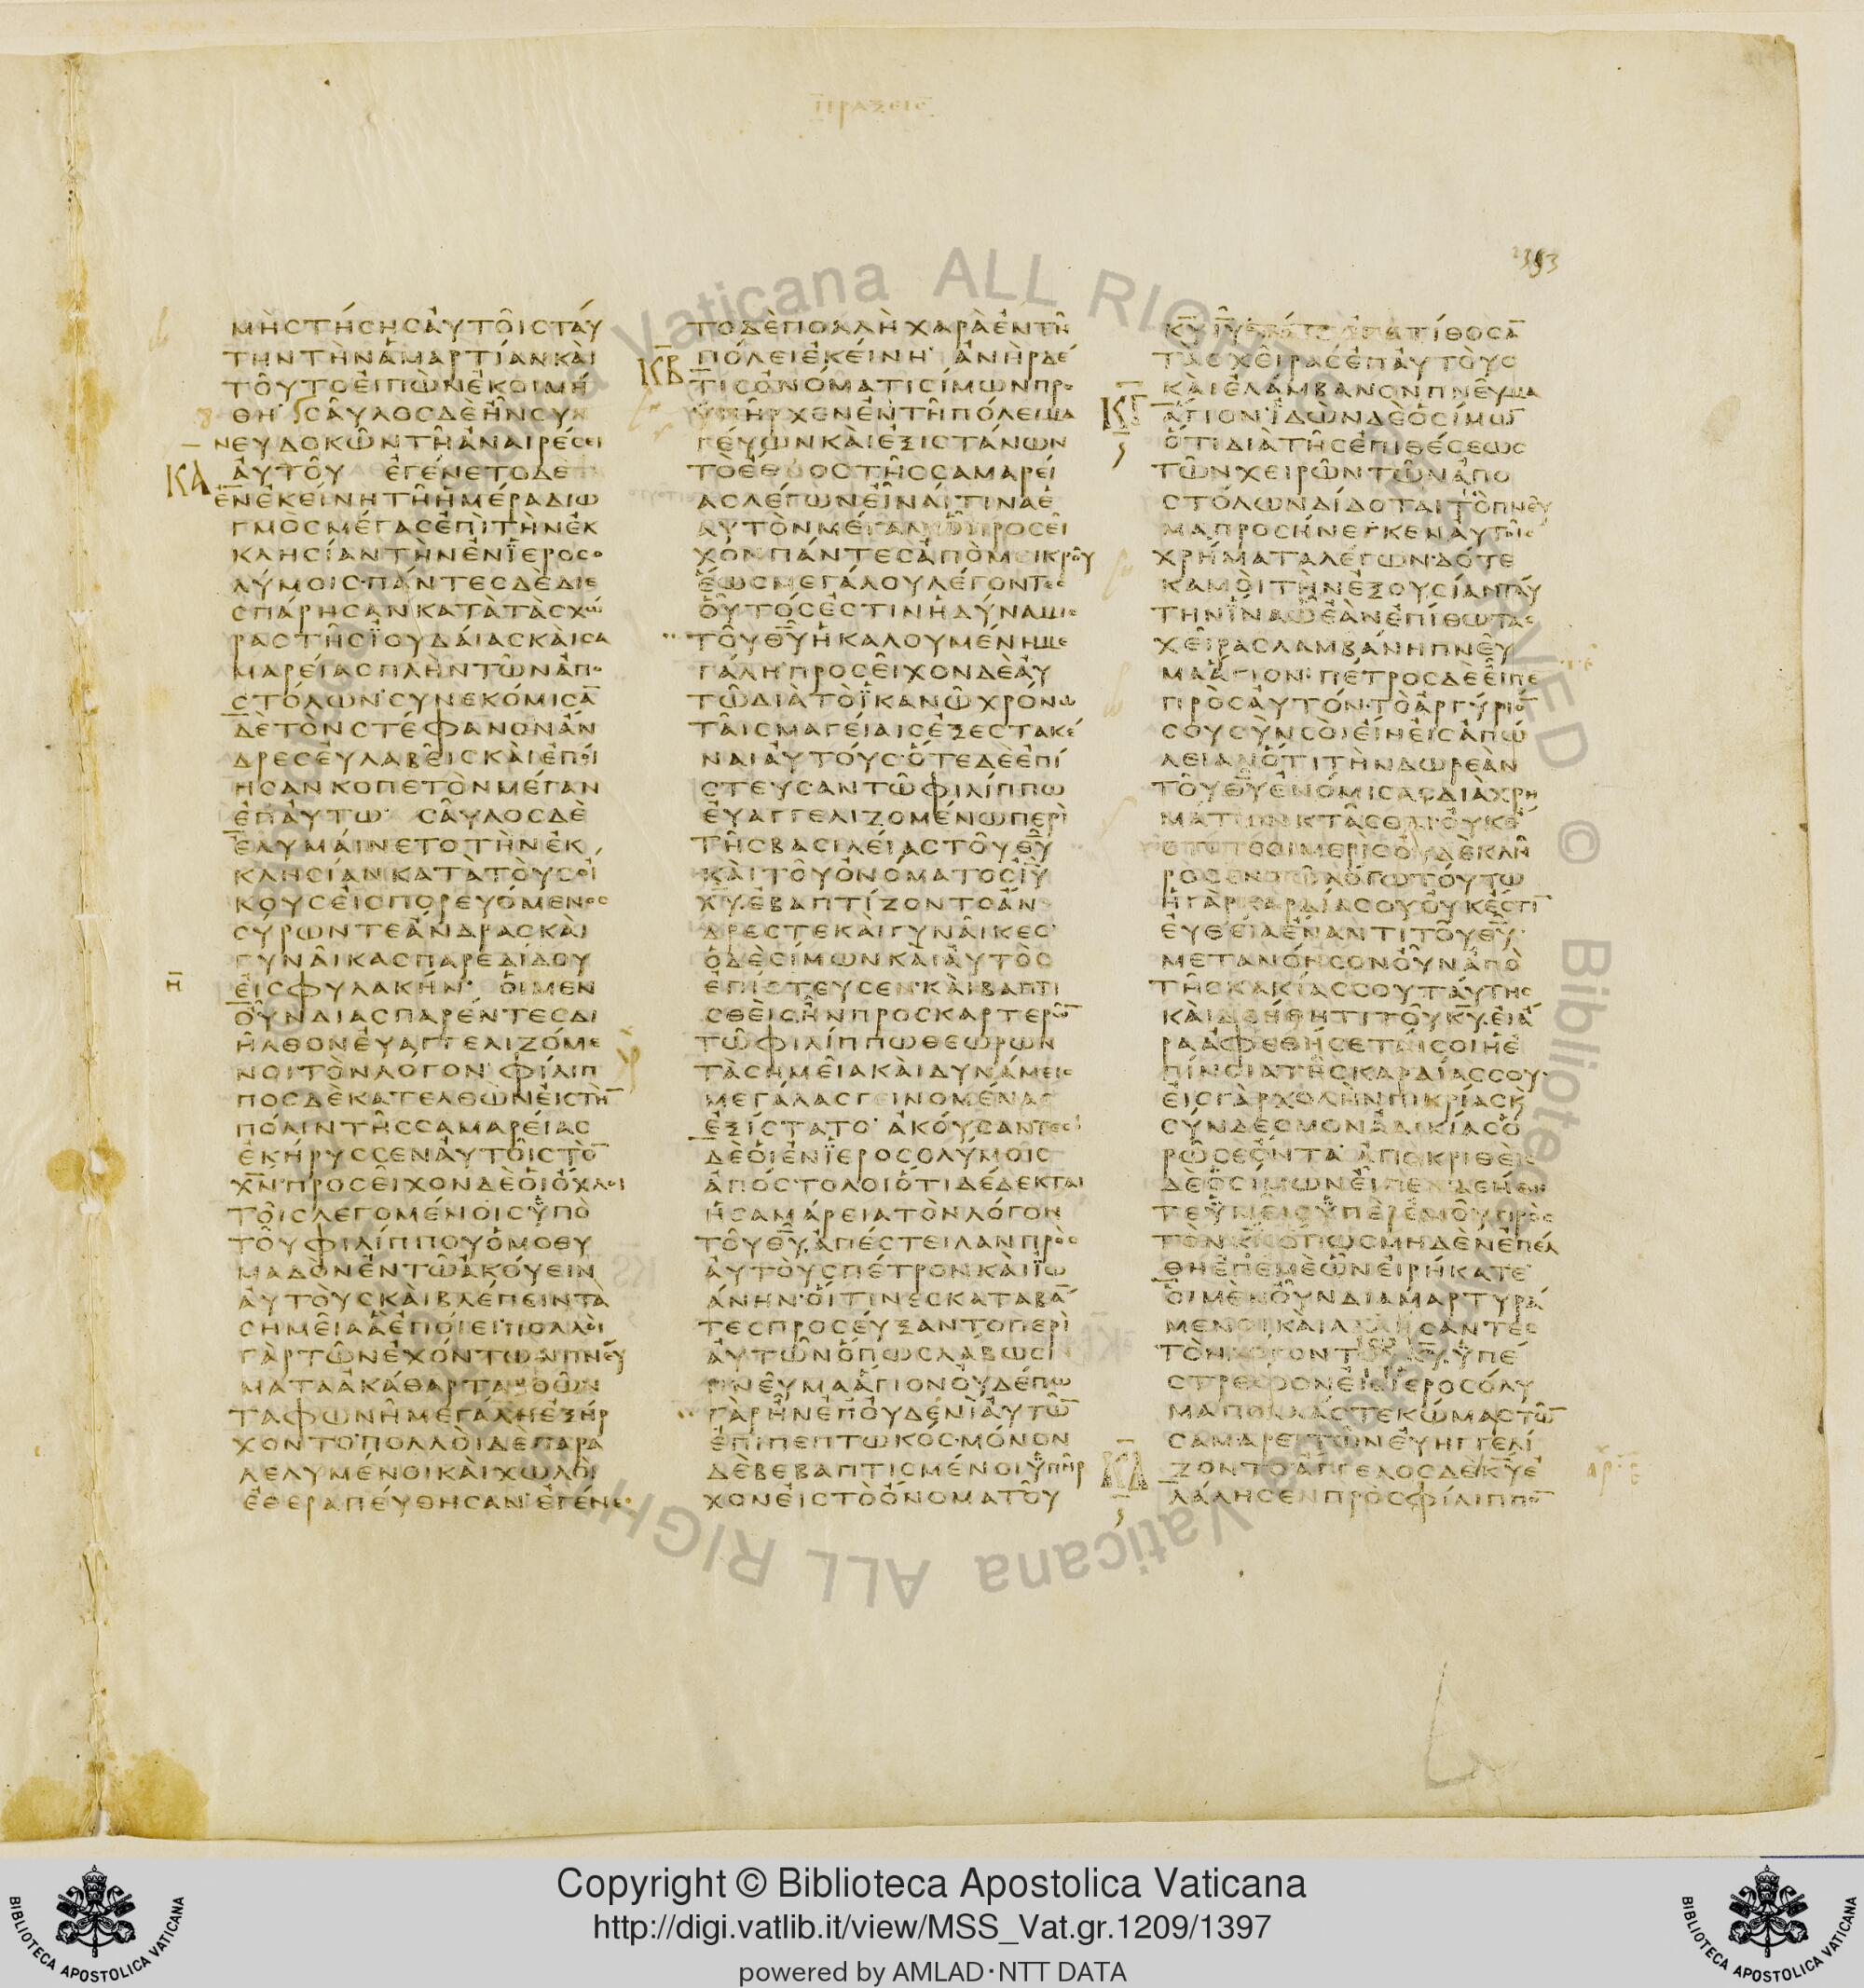 ΠΡΑΞΕΙΣ
1393
ΜΗΣΤΗΣΗΣΑΥΤΟΙΣΤΑΥ
ΤΗΝΤΗΝΑΜΑΡΤΙΑΝΚΑΙ
ΤΟΥΤΟΕΙΠΩΝΕΚΟΙΜΗ
ΘΗ ΣΑΥΛΟΣΔΕΗΝΣΥ
ΝΕΥΔΟΚΩΝΤΗΑΝΑΙΡΕΣΕΙ
ΚΑ ΑΥΤΟΥ ΕΓΕΝΕΤΟΔΕ
ΕΝΕΚΕΙΝΗΤΗΗΜΕΡΑΔΙΩ
ΓΜΟΣΜΕΓΑΣΕΠΙΤΗΝΕΚ
ΚΛΗΣΙΑΝΤΗΝΕΝΪΕΡΟΣΟ
ΛΥΜΟΙΣ·ΠΑΝΤΕΣΔΕΔΙΕ
ΣΠΑΡΗΣΑΝΚΑΤΑΤΑΣΧΩ
ΡΑΣΤΗΣΪΟΥΔΑΙΑΣΚΑΙΣΑ
ΜΑΡΕΙΑΣΠΛΗΝΤΩΝΑΠΟ
ΣΤΟΛΩΝ·ΣΥΝΕΚΟΜΙΣΑ̅
ΔΕΤΟΝΣΤΕΦΑΝΟΝΑΝ
ΔΡΕΣΕΥΛΑΒΕΙΣΚΑΙΕΠΟΙ
ΗΣΑΝΚΟΠΕΤΟΝΜΕΓΑΝ
ΕΠΑΥΤΩ ΣΑΥΛΟΣΔΕ
ΕΛΥΜΑΙΝΕΤΟΤΗΝΕΚ
ΚΛΗΣΙΑΝΚΑΤΑΤΟΥΣΟΙ
ΚΟΥΣΕΙΣΠΟΡΕΥΟΜΕΝΟΣ
ΣΥΡΩΝΤΕΑΝΔΡΑΣΚΑΙ
ΓΥΝΑΙΚΑΣΠΑΡΕΔΙΔΟΥ
Η̅ ΕΙΣΦΥΛΑΚΗΝ· ΟΙΜΕΝ
ΟΥΝΔΙΑΣΠΑΡΕΝΤΕΣΔΙ
ΗΛΘΟΝΕΥΑΓΓΕΛΙΖΟΜΕ
ΝΟΙΤΟΝΛΟΓΟΝ· ΦΙΛΙΠ
ΠΟΣΔΕΚΑΤΕΛΘΩΝΕΙΣΤΗ̅
ΠΟΛΙΝΤΗΣΣΑΜΑΡΕΙΑΣ
ΕΚΗΡΥΣΣΕΝΑΥΤΟΙΣΤΟ̅
Χ̅Ν̅·ΠΡΟΣΕΙΧΟΝΔΕΟΙΟΧΛΟΙ
ΤΟΙΣΛΕΓΟΜΕΝΟΙΣΫΠΟ
ΤΟΥΦΙΛΙΠΠΟΥΟΜΟΘΥ
ΜΑΔΟΝΕΝΤΩΑΚΟΥΕΙΝ
ΑΥΤΟΥΣΚΑΙΒΛΕΠΕΙΝΤΑ
ΣΗΜΕΙΑΑΕΠΟΙΕΙ·ΠΟΛΛΟΙ
ΓΑΡΤΩΝΕΧΟΝΤΩΝΠΝΕΥ
ΜΑΤΑΑΚΑΘΑΡΤΑΒΟΩΝ
ΤΑΦΩΝΗΜΕΓΑΛΗΕΞΗΡ
ΧΟΝΤΟ·ΠΟΛΛΟΙΔΕΠΑΡΑ
ΛΕΛΥΜΕΝΟΙΚΑΙΧΩΛΟΙ
ΕΘΕΡΑΠΕΥΘΗΣΑΝ·ΕΓΕΝΕ
ΤΟΔΕΠΟΛΛΗΧΑΡΑΕΝΤΗ
Κ̅Β̅ ΠΟΛΕΙΕΚΕΙΝΗ· ΑΝΗΡΔΕ
ΤΙΣΟΝΟΜΑΤΙΣΙΜΩΝΠΡΟ
ΫΠΗΡΧΕΝΕΝΤΗΠΟΛΕΙΜΑ
ΓΕΥΩΝΚΑΙΕΞΙΣΤΑΝΩΝ
ΤΟΕΘΝΟΣΤΗΣΣΑΜΑΡΕΙ
ΑΣΛΕΓΩΝΕΙΝΑΙΤΙΝΑΕ
ΑΥΤΟΝΜΕΓΑΝΩΠΡΟΣΕΙ
ΧΟΝΠΑΝΤΕΣΑΠΟΜΕΙΚΡΟΥ
ΕΩΣΜΕΓΑΛΟΥΛΕΓΟΝΤΕΣ
ΟΥΤΟΣΕΣΤΙΝΗΔΥΝΑΜΙΣ
ΤΟΥΘ̅Υ̅ΗΚΑΛΟΥΜΕΝΗΜΕ
ΓΑΛΗ·ΠΡΟΣΕΙΧΟΝΔΕΑΥ
ΤΩΔΙΑΤΟΪΚΑΝΩΧΡΟΝΩ
ΤΑΙΣΜΑΓΕΙΑΙΣΕΞΕΣΤΑΚΕ
ΝΑΙΑΥΤΟΥΣ·ΟΤΕΔΕΕΠΙ
ΣΤΕΥΣΑΝΤΩΦΙΛΙΠΠΩ
ΕΥΑΓΓΕΛΙΖΟΜΕΝΩΠΕΡΙ
ΤΗΣΒΑΣΙΛΕΙΑΣΤΟΥΘ̅Υ̅
ΚΑΙΤΟΥΟΝΟΜΑΤΟΣΙ̅Υ̅
Χ̅Υ̅·ΕΒΑΠΤΙΖΟΝΤΟΑΝ
ΔΡΕΣΤΕΚΑΙΓΥΝΑΙΚΕΣ·
ΟΔΕΣΙΜΩΝΚΑΙΑΥΤΟΣ
ΕΠΙΣΤΕΥΣΕΝ·ΚΑΙΒΑΠΤΙ
ΣΘΕΙΣΗΝΠΡΟΣΚΑΡΤΕΡΩ̅
ΤΩΦΙΛΙΠΠΩΘΕΩΡΩΝ
ΤΑΣΗΜΕΙΑΚΑΙΔΥΝΑΜΕΙΣ
ΜΕΓΑΛΑΣΓΕΙΝΟΜΕΝΑΣ
ΕΞΙΣΤΑΤΟ· ΑΚΟΥΣΑΝΤΕΣ
ΔΕΟΙΕΝΪΕΡΟΣΟΛΥΜΟΙΣ
ΑΠΟΣΤΟΛΟΙΟΤΙΔΕΔΕΚΤΑΙ
ΗΣΑΜΑΡΕΙΑΤΟΝΛΟΓΟΝ
ΤΟΥΘ̅Υ̅·ΑΠΕΣΤΕΙΛΑΝΠΡΟΣ
ΑΥΤΟΥΣΠΕΤΡΟΝΚΑΙΪΩ
ΑΝΗΝ·ΟΙΤΙΝΕΣΚΑΤΑΒΑ̅
ΤΕΣΠΡΟΣΕΥΞΑΝΤΟΠΕΡΙ
ΑΥΤΩΝΟΠΩΣΛΑΒΩΣΙ
ΠΝΕΥΜΑΑΓΙΟΝΟΥΔΕΠΩ
ΓΑΡΗΝΕΠΟΥΔΕΝΙΑΥΤΩ̅
ΕΠΙΠΕΠΤΩΚΟΣ·ΜΟΝΟΝ
ΔΕΒΕΒΑΠΤΙΣΜΕΝΟΙΫΠΗΡ
ΧΟΝΕΙΣΤΟΟΝΟΜΑΤΟΥ
Κ̅Υ̅Ι̅Υ̅ΤΟΤΕΕΠΕΤΙΘΟΣΑ̅
ΤΑΣΧΕΙΡΑΣΕΠΑΥΤΟΥΣ
ΚΑΙΕΛΑΜΒΑΝΟΝΠΝΕΥΜΑ
Κ̅Γ̅ ΑΓΙΟΝ·ΪΔΩΝΔΕΟΣΙΜΩ̅
ΟΤΙΔΙΑΤΗΣΕΠΙΘΕΣΕΩΣ
ΤΩΝΧΕΙΡΩΝΤΩΝΑΠΟ
ΣΤΟΛΩΝΔΙΔΟΤΑΙΤΟΠΝΕΥ
ΜΑΠΡΟΣΗΝΕΓΚΕΝΑΥΤΟΙΣ
ΧΡΗΜΑΤΑΛΕΓΩΝ·ΔΟΤΕ
ΚΑΜΟΙΤΗΝΕΞΟΥΣΙΑΝΤΑΥ
ΤΗΝΪΝΑΩΕΑΝΕΠΙΘΩΤΑΣ
ΧΕΙΡΑΣΛΑΜΒΑΝΗΠΝΕΥ
ΜΑΑΓΙΟΝ·ΠΕΤΡΟΣΔΕΕΙΠΕ
ΠΡΟΣΑΥΤΟΝ·ΤΟΑΡΓΥΡΙΟ̅
ΣΟΥΣΥΝΣΟΙΕΙΗΕΙΣΑΠΩ
ΛΕΙΑΝΟΤΙΤΗΝΔΩΡΕΑΝ
ΤΟΥΘ̅Υ̅ΕΝΟΜΙΣΑΣΔΙΑΧΡΗ
ΜΑΤΩΝΚΤΑΣΘΑΙ·ΟΥΚΕ
ΣΤΙΝΣΟΙΜΕΡΙΣΟΥΔΕΚΛΗ
ΡΟΣΕΝΤΩΛΟΓΩΤΟΥΤΩ
ΗΓΑΡΚΑΡΔΙΑΣΟΥΟΥΚΕΣΤΙ̅
ΕΥΘΕΙΑΕΝΑΝΤΙΤΟΥΘ̅Υ̅·
ΜΕΤΑΝΟΗΣΟΝΟΥΝΑΠΟ
ΤΗΣΚΑΚΙΑΣΣΟΥΤΑΥΤΗΣ
ΚΑΙΔΕΗΘΗΤΙΤΟΥΚ̅Υ̅·ΕΙΑ
ΡΑΑΦΕΘΗΣΕΤΑΙΣΟΙΗΕ
ΠΙΝΟΙΑΤΗΣΚΑΡΔΙΑΣΣΟΥ·
ΕΙΣΓΑΡΧΟΛΗΝΠΙΚΡΙΑΣΚ
ΣΥΝΔΕΣΜΟΝΑΔΙΚΙΑΣΟ
ΡΩΣΕΟΝΤΑ· ΑΠΟΚΡΙΘΕΙΣ
ΔΕΟΣΙΜΩΝΕΙΠΕΝ·ΔΕΗΘΗ
ΤΕΫΜΕΙΣΫΠΕΡΕΜΟΥΠΡΟΣ
ΤΟΝΚ̅Ν̅ΟΠΩΣΜΗΔΕΝΕΠΕΛ
ΘΗΕΠΕΜΕΩΝΕΙΡΗΚΑΤΕ·
ΟΙΜΕΝΟΥΝΔΙΑΜΑΡΤΥΡΑ
ΜΕΝΟΙΚΑΙΛΑΛΗΣΑΝΤΕΣ
ΤΟΝΛΟΓΟΝΤΟΥΚ̅Υ̅·ΫΠΕ
ΣΤΡΕΦΟΝΕΙΣΪΕΡΟΣΟΛΥ
ΜΑΠΟΛΛΑΣΤΕΚΩΜΑΣΤΩ̅
ΣΑΜΑΡΕΙΤΩΝΕΥΗΓΓΕΛΙ
Κ̅Δ̅ ΖΟΝΤΟ·ΑΓΓΕΛΟΣΔΕΚ̅Υ̅Ε
ΛΑΛΗΣΕΝΠΡΟΣΦΙΛΙΠΠΟ̅
Copyright © Biblioteca Apostolica Vaticana
http://digi.vatlib.it/view/MSS_Vat.gr.1209/1397
powered by AMLAD·NTT DATA
BIBLIOTECA APOSTOLICA VATICANA
BIBLIOTECA APOSTOLICA VATICANA